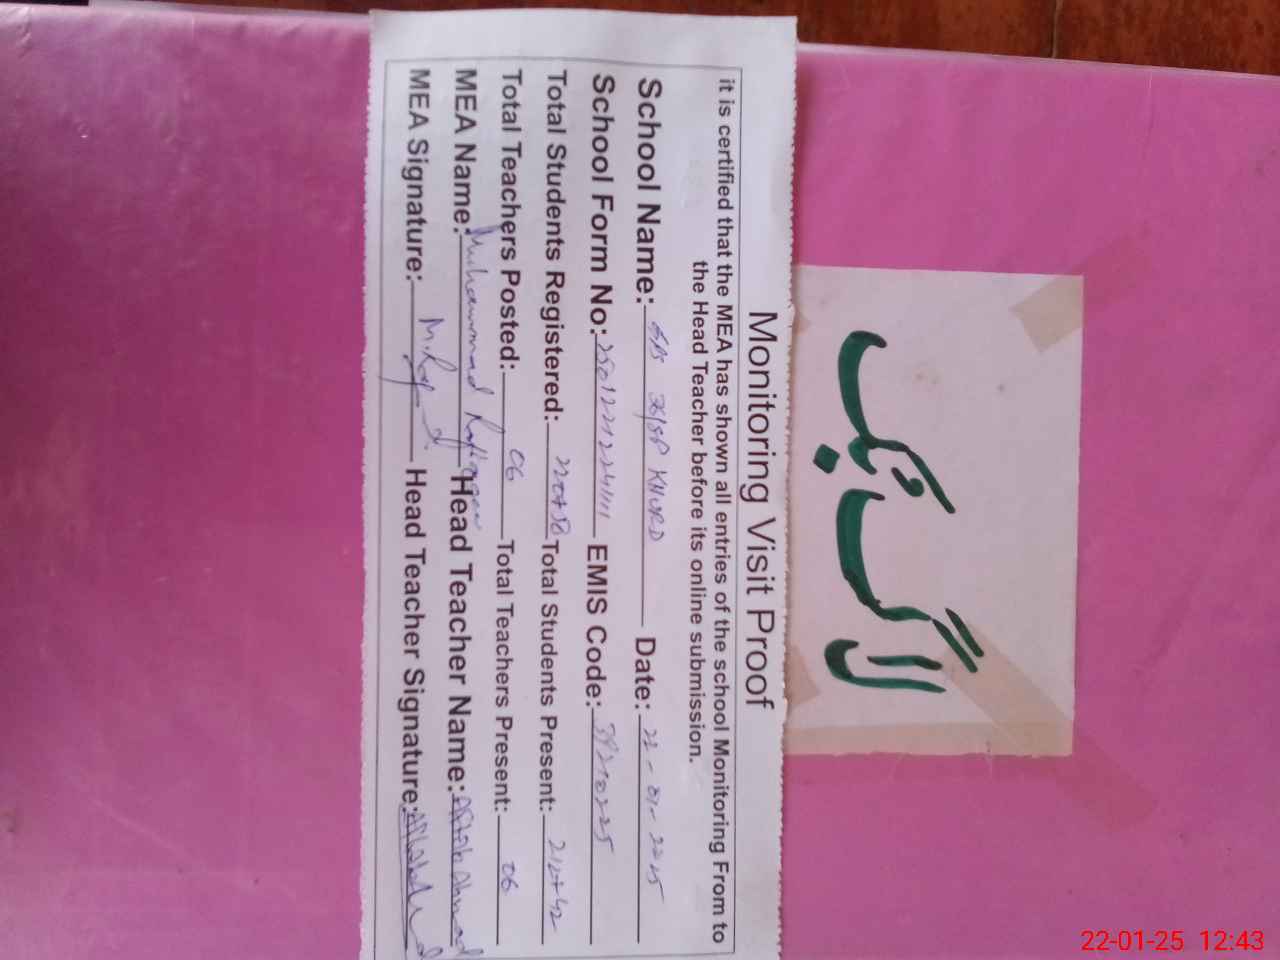 لاگ بک
Monitoring Visit Proof
it is certified that the MEA has shown all entries of the school Monitoring From to
the Head Teacher before its online submission.
School Name: GPS 36/SP KHURD Date: 22-01-2025
School Form No: EMIS Code: 39210225
Total Students Registered: 220+58 Total Students Present: 212+42
Total Teachers Posted: 06 Total Teachers Present: 06
MEA Name: Muhammad Head Teacher Name: Aftab Ahmad
MEA Signature: Head Teacher Signature:
22-01-25 12:43